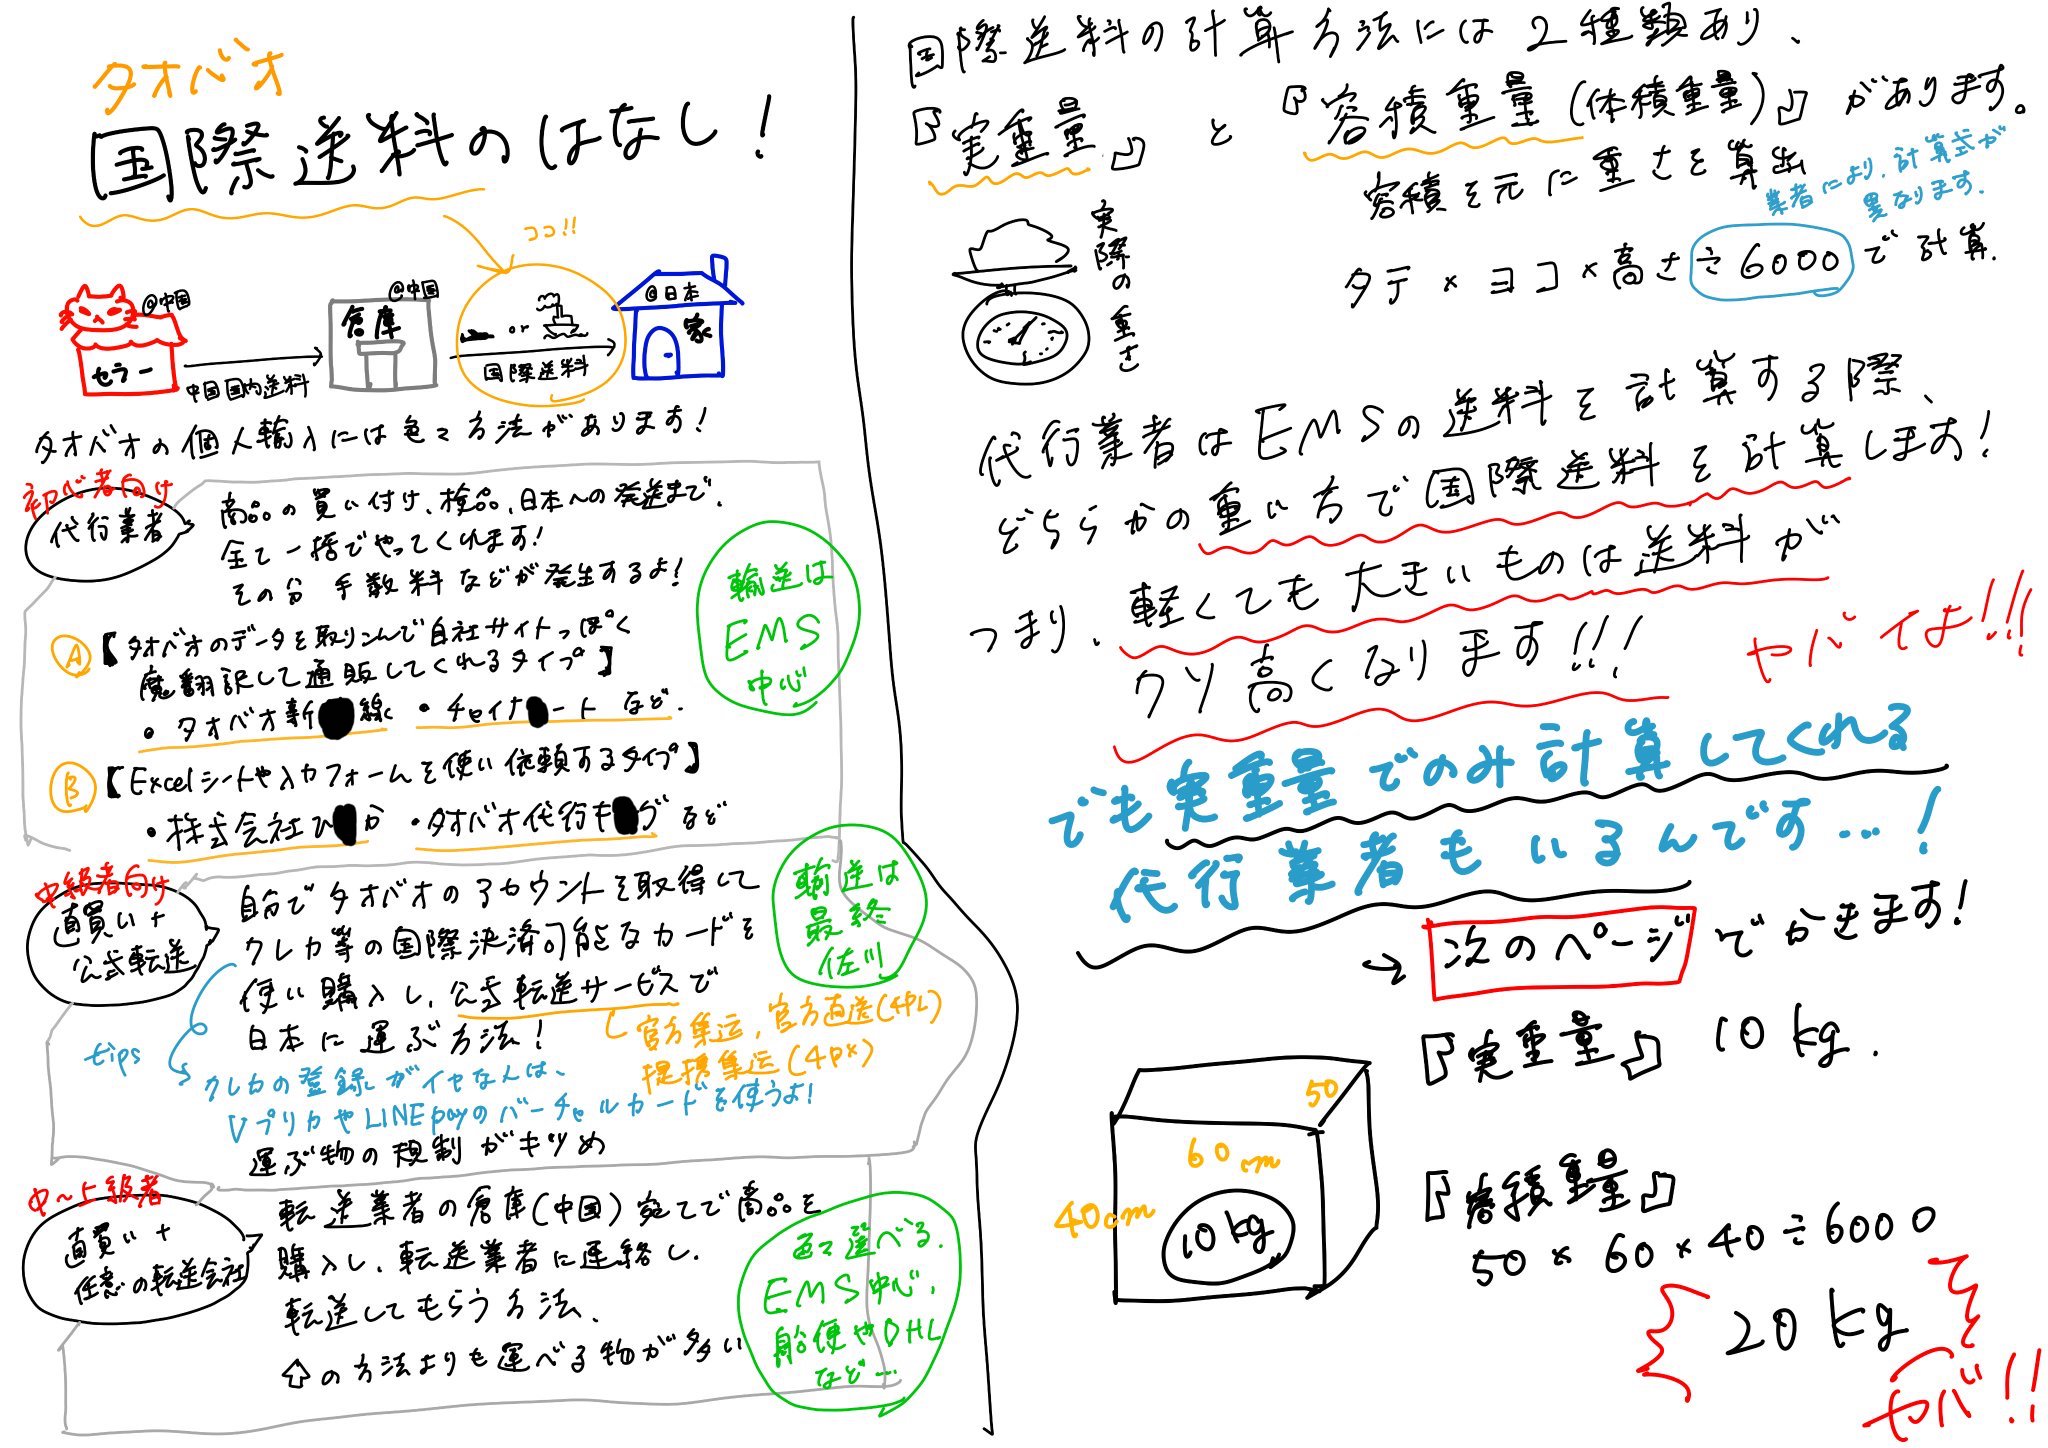 タオバオ
国際送料のはなし!
ココ!!
@中国
セラー
中国国内送料
@中国
倉庫
or
国際送料
@日本
家
タオバオの個人輸入には色々方法があります!
初心者向け
代行業者
商品の買い付け、検品、日本への発送まで、
全て一括でやってくれます!
その分 手数料などが発生するよ!
輸送は
EMS
中心
A【タオバオのデータを取りこんで自社サイトっぽく
魔翻訳して通販してくれるタイプ】
・タオバオ新 線 ・チャイナ ート など.
B【Excelシートや入力フォームを使い依頼するタイプ】
・株式会社ひ か ・タオバオ代行も グ など
中級者向け
直買い+
公式転送
自分でタオバオのアカウントを取得して
クレカ等の国際決済可能なカードを
使い購入し、公式転送サービスで
日本に運ぶ方法!
輸送は
最終
佐川
官方集运,官方直送(4PL)
提携集运(4px)
tips
クレカの登録がイヤなんは、
Vプリカや LINE payのバーチャルカードを使うよ!
運ぶ物の規制がキツめ
中〜上級者
直買い+
任意の転送会社
転送業者の倉庫(中国)宛てで商品を
購入し、転送業者に連絡し.
転送してもらう方法.
⇧の方法よりも運べる物が多い
色々選べる.
EMS中心,
船便やDHL
など…
国際送料の計算方法には2種類あり、
『実重量』と『容積重量(体積重量)』があります。
実際の重さ
容積を元に重さを算出
業者により、計算式が
異なります.
タテ×ヨコ×高さ÷6000で計算.
代行業者はEMSの送料を計算する際、
どちらかの重い方で国際送料を計算します!
つまり、軽くても大きいものは送料が
クソ高くなります!!!
ヤバイよ!!!
でも実重量でのみ計算してくれる
代行業者もいるんです…!
→次のページでかきます!
50
60cm
40cm
10kg
『実重量』 10kg.
『容積重量』
50×60×40÷6000
20kg
ヤバ!!